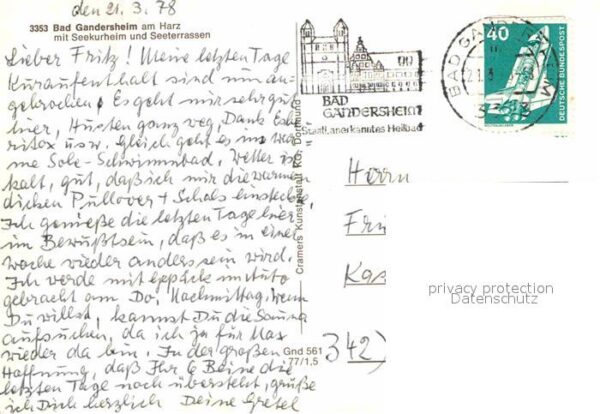 den 21. 3. 78
3353 Bad Gandersheim am Harz
mit Seekurheim und Seeterrassen
Lieber Fritz! Meine letzten Tage
Kuraufenthalt sind nun an-
gebrochen. Es geht mir sehr gut
hier, Husten ganz weg, Dank
usw. Gleich geht es ins war-
me Sole-Schwimmbad, Wetter ist
kalt, gut, daß ich mir die warmen
dicken Pullover + Schals einsteckte.
Ich genieße die letzten Tage hier
im Bewußtsein, daß es in einer
Woche wieder anders sein wird.
Ich werde mit Gepäck im Auto
gebracht am Do, Nachmittag, wenn
Du willst, kannst Du die Sauna
aufsuchen, da ich ja für Max
wieder da bin. In der großen
Hoffnung, daß Ihr 6 Beine die
letzten Tage noch übersteht, grüße
ich Dich herzlich Deine Gretel
Cramers Kunstanstalt KG, Dortmund
Gnd 561
77/1,5
BAD
GANDERSHEIM
Staatl. anerkanntes Heilbad
BAD GANDERSHEIM
21. 3. 78
3353
40
DEUTSCHE BUNDESPOST
Herrn
Fri
Kas
342
privacy protection
Datenschutz